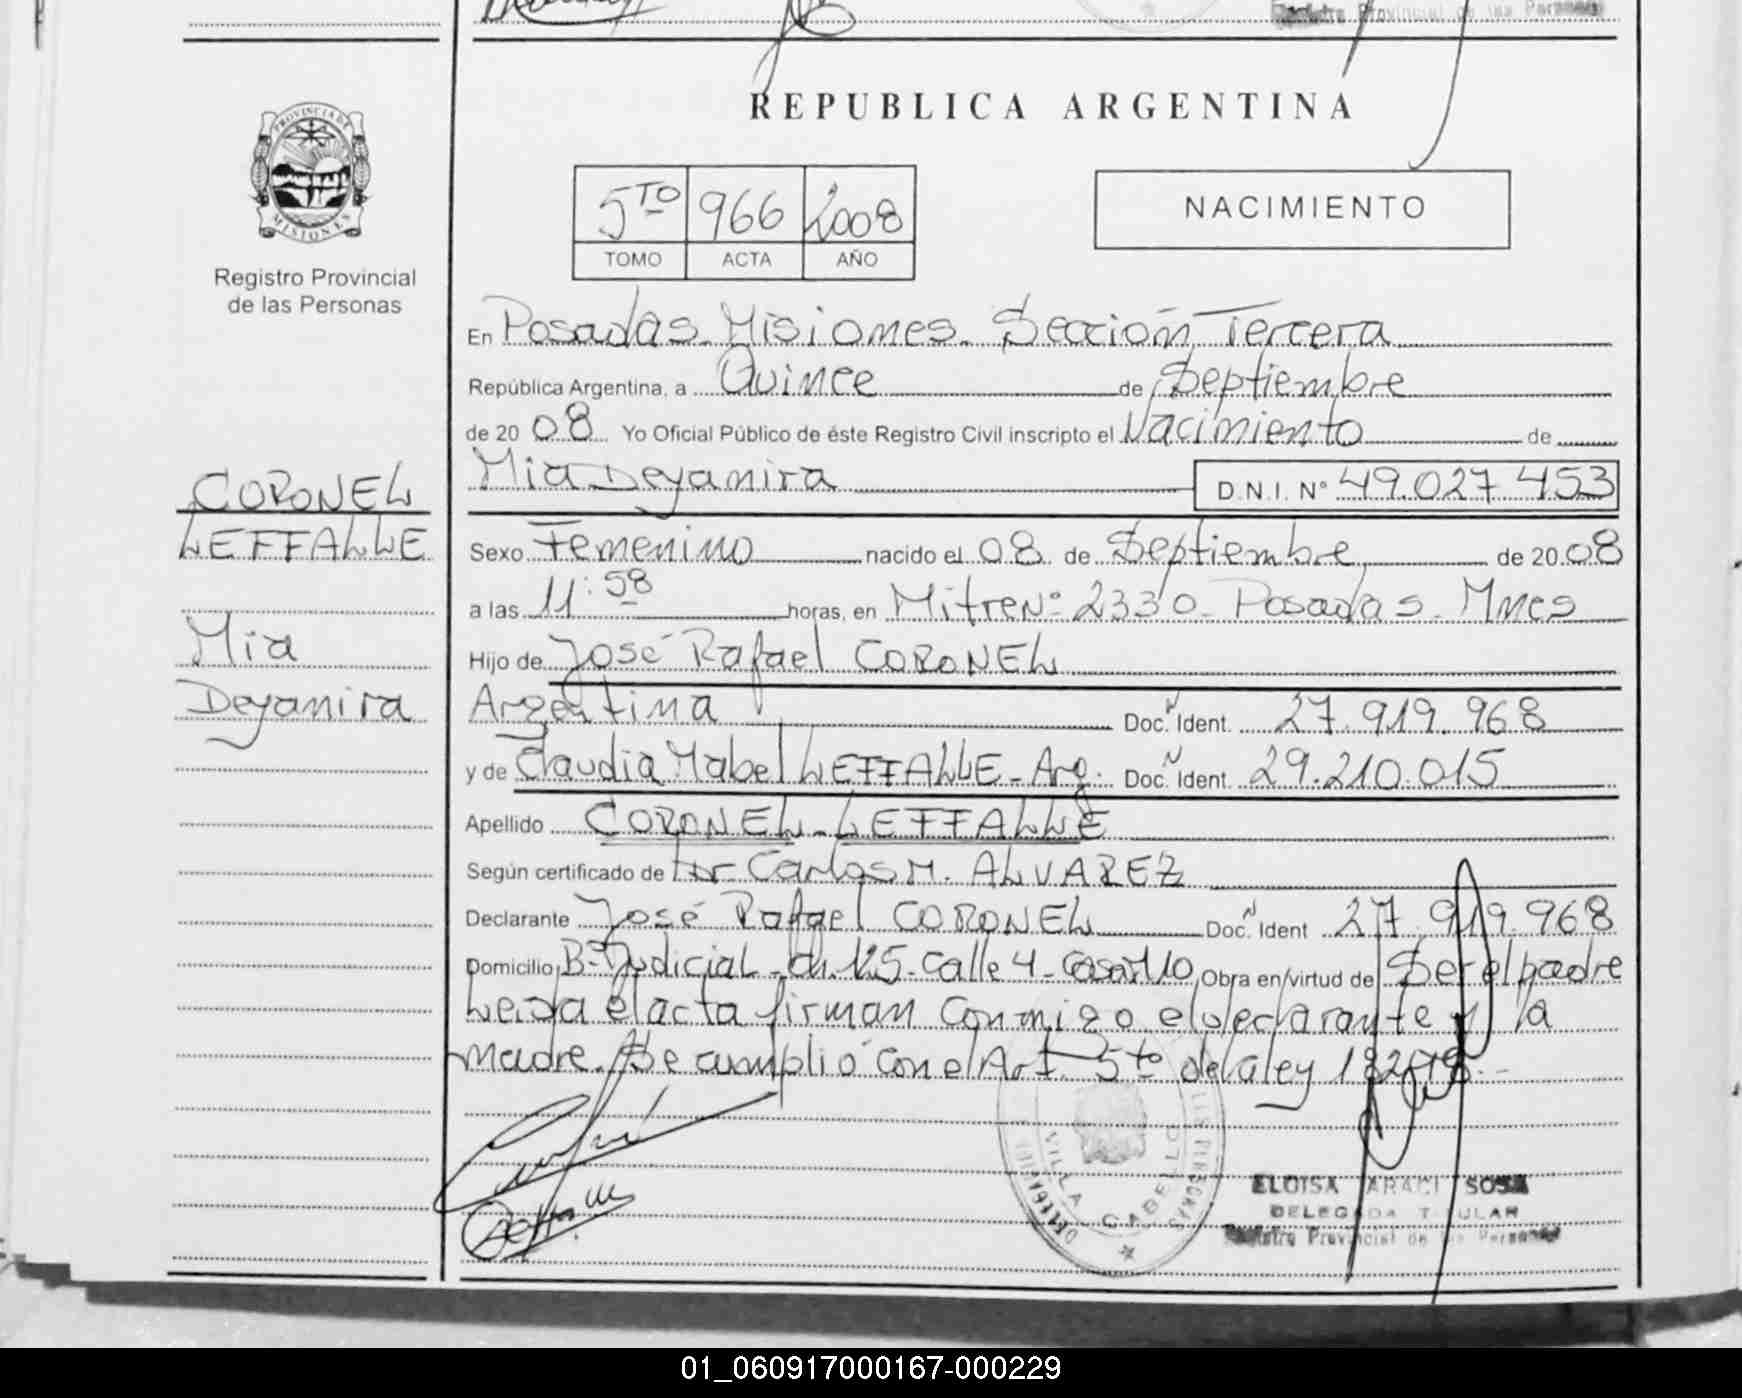 Registro Provincial de las Personas
REPUBLICA ARGENTINA
PROVINCIA DE
MISIONES
Registro Provincial
de las Personas
5TO 966 2008
TOMO ACTA AÑO
NACIMIENTO
En Posadas Misiones. Sección Tercera
República Argentina, a Quince de Septiembre
de 20 08 Yo Oficial Público de éste Registro Civil inscripto el Nacimiento de
Mia Deyanira D.N.I. N° 49.027 453
CORONEL
LEFFALLE
Mia
Deyanira
Sexo Femenino nacido el 08 de Septiembre de 20 08
a las 11:58 horas, en Mitre N° 2330 - Posadas - Mnes
Hijo de José Rafael CORONEL
Argentina Doc. N Ident. 27.919.968
y de Claudia Mabel LEFFALLE - Arg. Doc. N Ident. 29.210.015
Apellido CORONEL - LEFFALLE
Según certificado de Dr Carlos M. ALVAREZ
Declarante José Rafael CORONEL Doc. N Ident 27.919.968
Domicilio B° Judicial - Ch. 125 - Calle 4 - Casa 110 Obra en virtud de Ser el padre
Leida el acta firman conmigo el declarante y la
madre. Se cumplió con el Art 5to de la ley 18248.-
VILLA CABELLO
ELOISA ARACI SOSA
DELEGADA TITULAR
Registro Provincial de las Personas
01_060917000167-000229